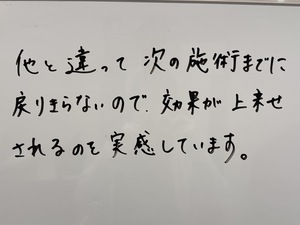 他と違って 次の施術までに
戻りきらないので、効果が上来せ
されるのを実感しています。